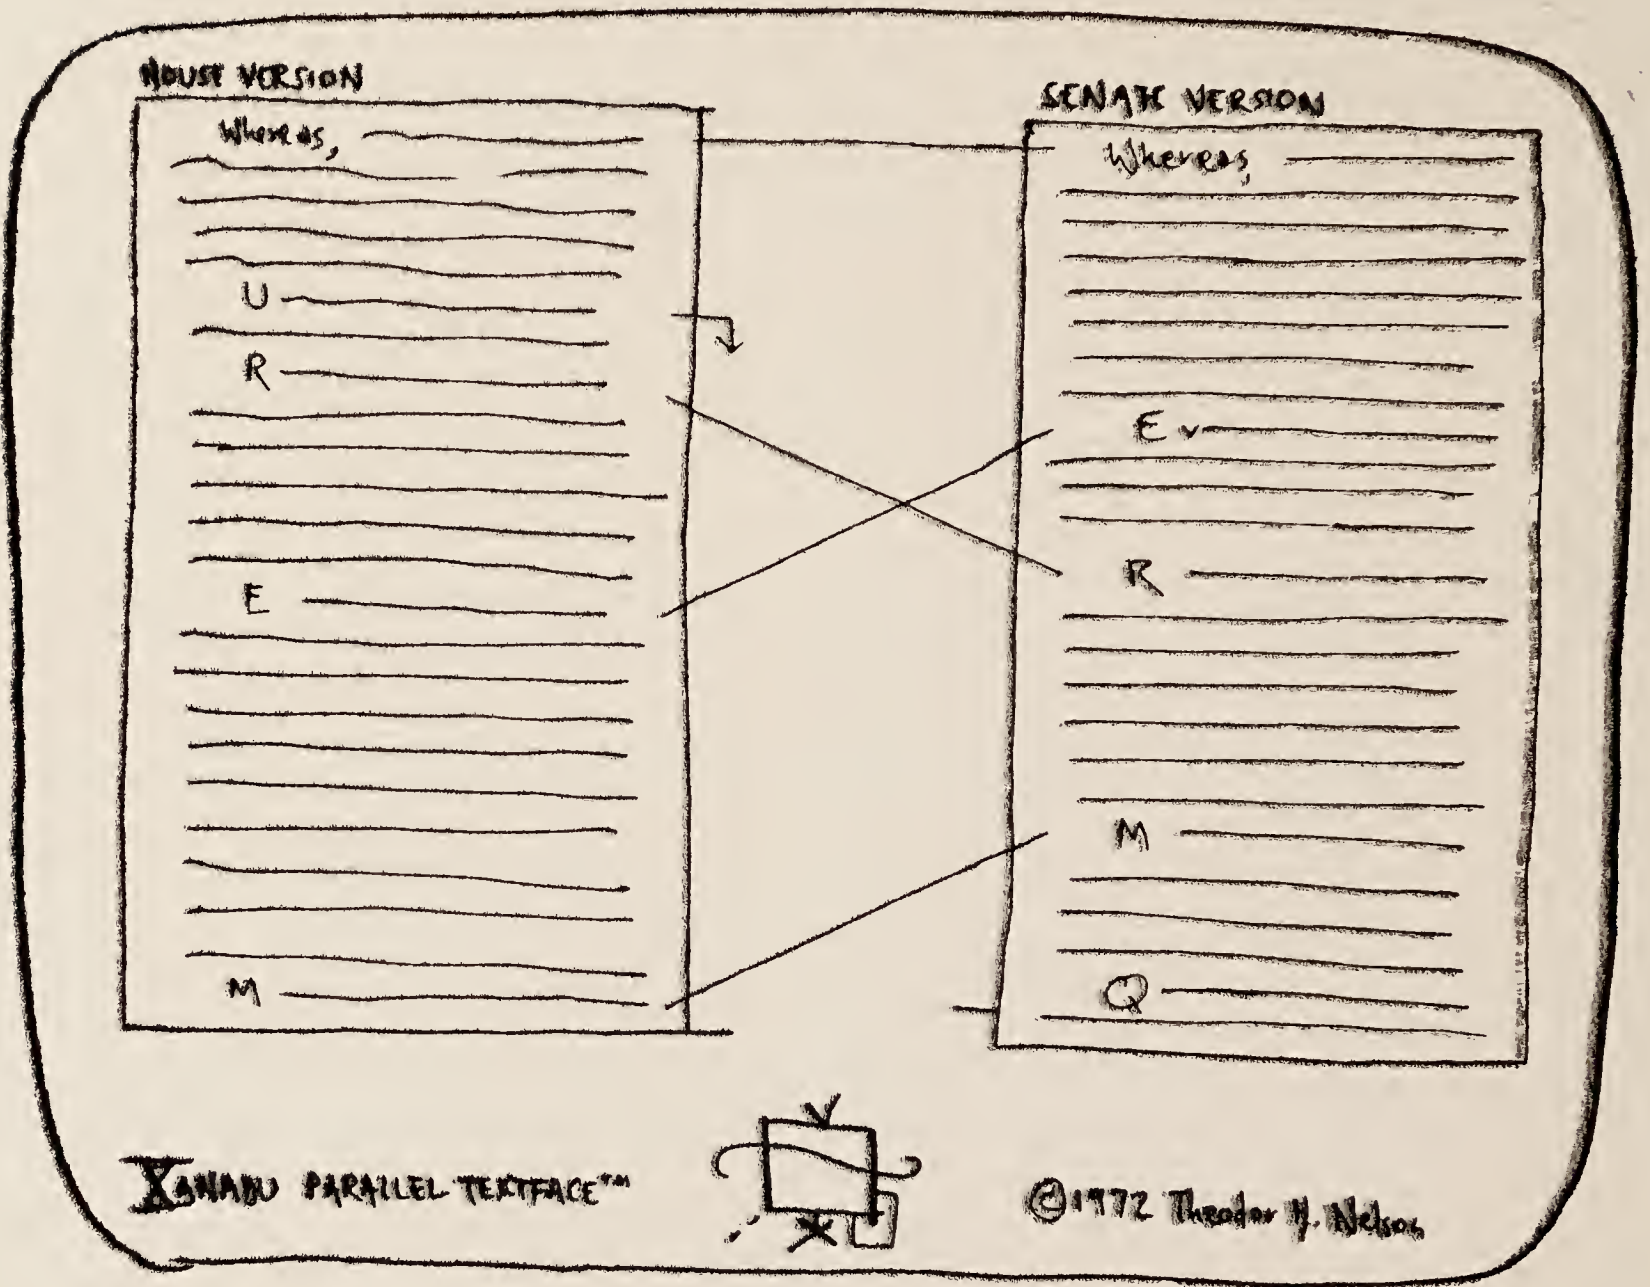 HOUSE VERSION
Whereas,
U
R
E
M
SENATE VERSION
Whereas,
Ev
R
M
Q
XANADU PARALLEL TEXTFACE™
©1972 Theodor H. Nelson